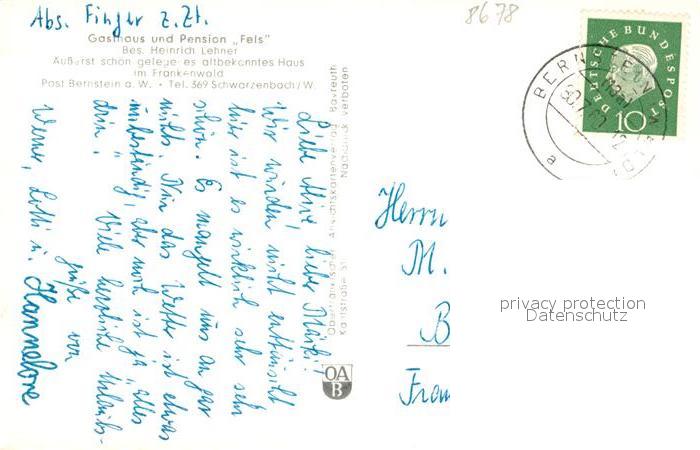 Abs. Finger z. Zt.
Gasthaus und Pension „Fels"
Bes. Heinrich Lehner
Äußerst schön gelegenes altbekanntes Haus
im Frankenwald
Post Bernstein a. W. • Tel. 369 Schwarzenbach/W.
8678
DEUTSCHE BUNDESPOST
10
BERNSTEIN
a
Liebe Mizi, lieber Märki!
Wir wurden nicht enttäuscht
hier ist es wirklich sehr sehr
schön. Es mangelt uns an gar
nichts. Nur das Wetter ist etwas
unbeständig, aber noch ist ja alles
drin. Viele herzliche Urlaubs-
grüße von
Werner, Lotti u. Hannelore
Oberfränkischer Ansichtskartenverlag Bayreuth
Karlstraße 51 Nachdruck verboten
OA
B
Herrn
M.
B
Fran
privacy protection
Datenschutz